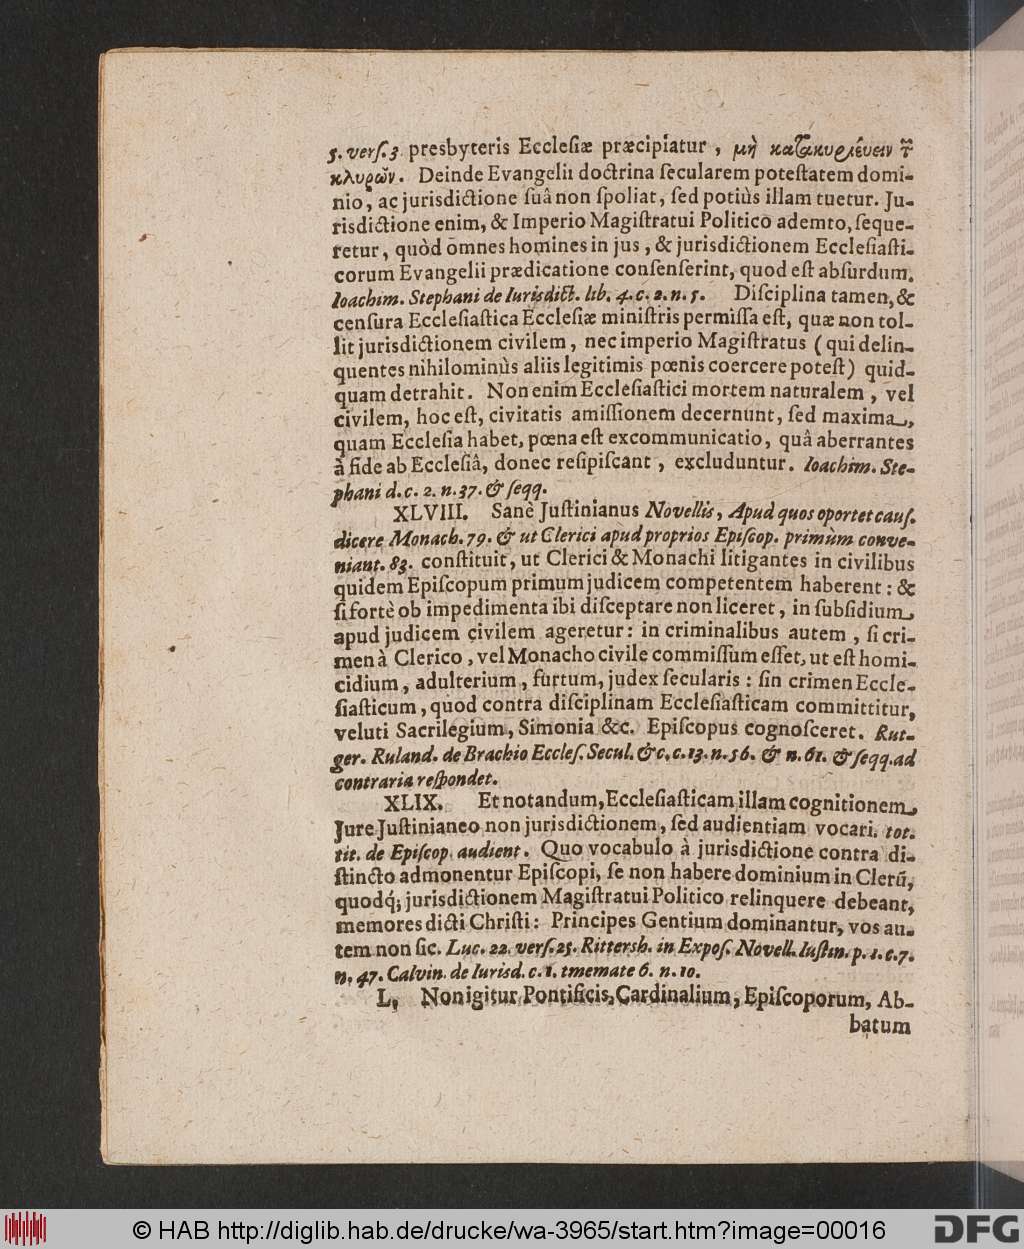 5. verſ. 3 presbyteris Eccleſiæ præcipiatur, μὴ κατακυριεύειν τ῀
κλυρῶν. Deinde Evangelii doctrina ſecularem poteſtatem domi-
nio, ac jurisdictione ſuâ non ſpoliat, ſed potiùs illam tuetur. Ju-
risdictione enim, & Imperio Magiſtratui Politico ademto, ſeque-
retur, quòd omnes homines in jus, & jurisdictionem Eccleſiaſti-
corum Evangelii prædicatione conſenſerint, quod eſt abſurdum.
Ioachim. Stephani de Iurisdict. lib. 4. c. 2. n. 5. Diſciplina tamen, &
cenſura Eccleſiaſtica Eccleſiæ miniſtris permiſſa eſt, quæ non tol-
lit jurisdictionem civilem, nec imperio Magiſtratus (qui delin-
quentes nihilominùs aliis legitimis pœnis coercere poteſt) quid-
quam detrahit. Non enim Eccleſiaſtici mortem naturalem, vel
civilem, hoc eſt, civitatis amiſſionem decernunt, ſed maxima,
quam Eccleſia habet, pœna eſt excommunicatio, quâ aberrantes
à fide ab Eccleſiâ, donec reſipiſcant, excluduntur. Ioachim. Ste-
phani d. c. 2. n. 37. & ſeqq.
XLVIII. Sanè Juſtinianus Novellis, Apud quos oportet cauſ.
dicere Monach. 79. & ut Clerici apud proprios Epiſcop. primùm conve-
niant. 83. conſtituit, ut Clerici & Monachi litigantes in civilibus
quidem Epiſcopum primum judicem competentem haberent: &
ſi fortè ob impedimenta ibi diſceptare non liceret, in ſubſidium,
apud judicem civilem ageretur: in criminalibus autem, ſi cri-
men à Clerico, vel Monacho civile commiſſum eſſet, ut eſt homi-
cidium, adulterium, furtum, judex ſecularis: ſin crimen Eccle-
ſiaſticum, quod contra diſciplinam Eccleſiaſticam committitur,
veluti Sacrilegium, Simonia &c. Epiſcopus cognoſceret. Rut-
ger. Ruland. de Brachio Eccleſ. Secul. &c. c. 13. n. 56. & n. 61. & ſeqq. ad
contraria reſpondet.
XLIX. Et notandum, Eccleſiaſticam illam cognitionem,
Jure Juſtinianeo non jurisdictionem, ſed audientiam vocari. tot.
tit. de Epiſcop. audient. Quo vocabulo à jurisdictione contra di-
ſtincto admonentur Epiſcopi, ſe non habere dominium in Clerū,
quodq́; jurisdictionem Magiſtratui Politico relinquere debeant,
memores dicti Chriſti: Principes Gentium dominantur, vos au-
tem non ſic. Luc. 22. verſ. 25. Rittersh. in Expoſ. Novell. Iuſtin. p. 1. c. 7.
n. 47. Calvin. de Iurisd. c. 1. tmemate 6. n. 10.
L, Non igitur Pontificis, Cardinalium, Epiſcoporum, Ab-
batum
© HAB http://diglib.hab.de/drucke/wa-3965/start.htm?image=00016
DFG